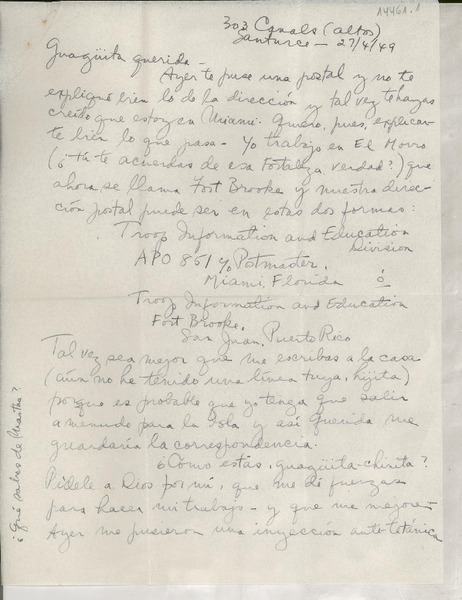 A4461.1
303 Canals (altos)
Santurce — 27/4/49
Guagüita querida —
Ayer te puse una postal y no te
expliqué bien lo de la dirección y tal vez te hayas
creído que estoy en Miami. Quiero, pues, explicar-
te bien lo que pasa — Yo trabajo en El Morro
(¿Tú te acuerdas de esa Fortaleza, verdad?) que
ahora se llama Fort Brooke y nuestra direc-
ción postal puede ser en estas dos formas:
Troop Information and Education
Division
APO 851 c/o Postmaster,
Miami, Florida ó
Troop Information and Education
Fort Brooke,
San Juan, Puerto Rico
Tal vez sea mejor que me escribas a la casa
(aún no he tenido una línea tuya, hijita)
porque es probable que yo tenga que salir
a menudo para la Isla y así Querida me
guardaría la correspondencia.
¿Cómo estás, guagüita-chinita?
Pídele a Dios por mí, que me dé fuerzas
para hacer mi trabajo — y que me mejore —
Ayer me pusieron una inyección anti-tetánica
¿Qué sabes de Martha?